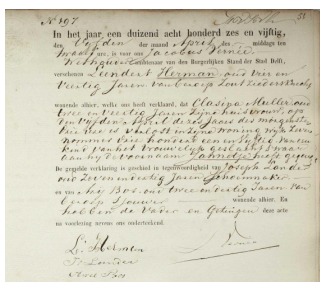 No 197
51
In het jaar, een duizend acht honderd zes en vijftig,
den Vyfden der maand April des middags ten
twaalf ure, is voor ons Jacobus Pernie.
Wethouder Ambtenaar van den Burgerlijken Stand der Stad Delft,
verschenen Leendert Herman, oud vier en
Veertig Jaren van beroep
wonende alhier, welke ons heeft verklaard, dat Clasina Muller, oud
twee en Veertig Jaren Zijne huisvrouw, op
den Vyfden April dezes jaars des morgens ten
drie ure is verlost in zijne woning wyk
nommer honderd een en vyftig van een
kind van het Vrouwelijk geslacht, waar
aan hij de voornaam heeft gegeven
De gezegde verklaring is geschied in tegenwoordigheid van Joseph Lander
oud Zeven en veertig Jaren, Schoenmaker
en van Arie Bos, oud twee en veertig Jaren van
beroep Sjouwer wonende alhier. En
hebben de Vader en Getuigen deze acte
na voorlezing nevens ons onderteekend.
Ls Herman
Js Lander
Arie Bos
Pernie